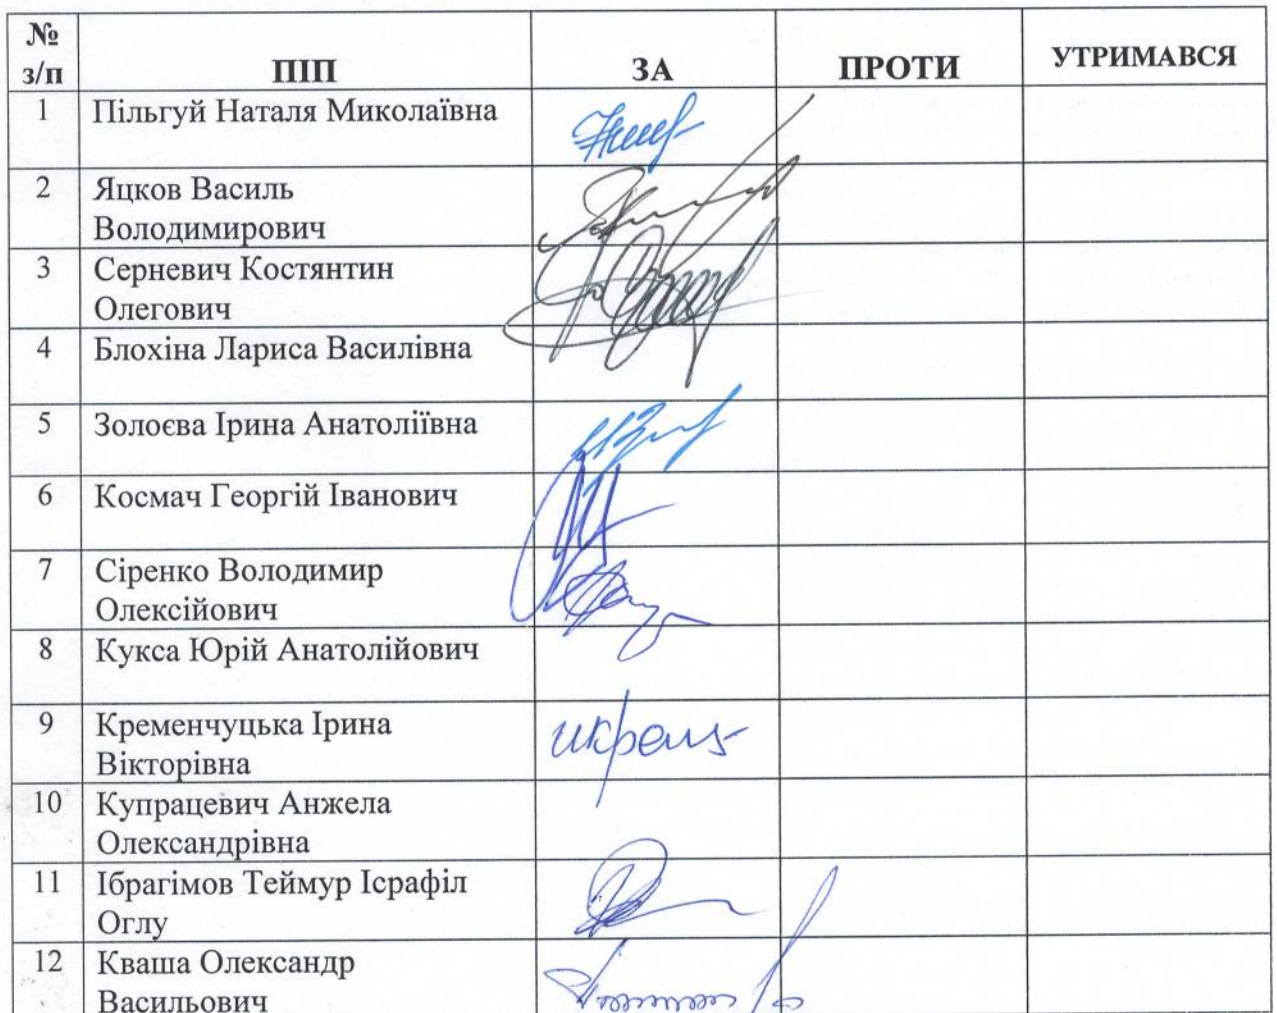 № з/п ПІП ЗА ПРОТИ УТРИМАВСЯ
1 Пільгуй Наталя Миколаївна
2 Яцков Василь
Володимирович
3 Серневич Костянтин
Олегович
4 Блохіна Лариса Василівна
5 Золоєва Ірина Анатоліївна
6 Космач Георгій Іванович
7 Сіренко Володимир
Олексійович
8 Кукса Юрій Анатолійович
9 Кременчуцька Ірина
Вікторівна
10 Купрацевич Анжела
Олександрівна
11 Ібрагімов Теймур Ісрафіл
Оглу
12 Кваша Олександр
Васильович